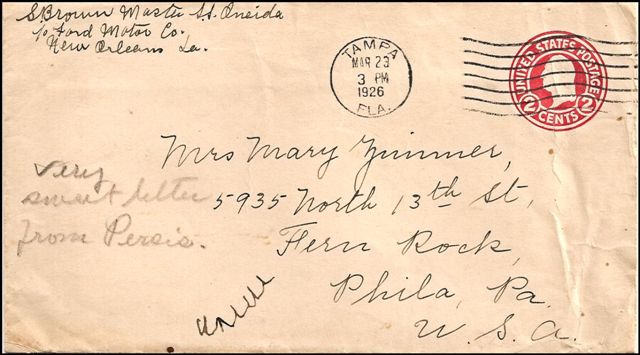 S Brown Master St. Oneida
c/o Ford Motor Co.
New Orleans La.
TAMPA
MAR 23
3 PM
1926
FLA.
UNITED STATES POSTAGE
2 CENTS 2
Mrs Mary Zimmer,
5935 North 13th St,
Fern Rock,
Phila, Pa.
U. S. A.
very
sweet letter
from Persis.